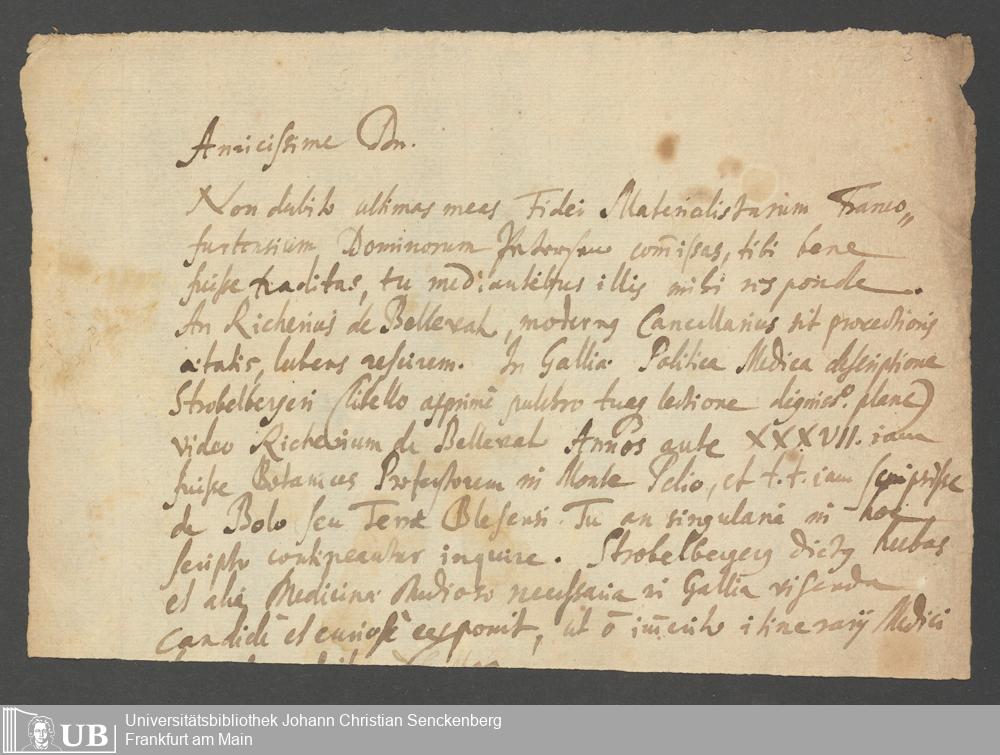 3
Amicissime Dn.
Non dubito ultimas meas Fidei Materialistarum Franco„
furtensium Dominorum comissas, tibi bene
fuisse traditas, tu mediantibus illis mihi responde.
An Richerius de Belleval, modernq Cancellarius sit provectioris
aetatis, lubens rescirem. In Gallia Politica Medica descriptione
Strobelbergeri (libello apprimè pulchro tuaq lectione digniss°. plane)
video Richerium de Belleval Annos ante XXXVII. iam
fuisse Botanices Professorem in Monte Pelio, et t.t. iam scripsisse
de Bolo seu Terra Blesensi. Tu an singularia in hoc
scripto contineantur inquire. Strobelbergerq dictq herbas
et alia Medicinae Studioso necessaria in Gallia visenda
candidè et curiosè exponit, ut ō im̄erito itinerarij Medici
UB
Universitätsbibliothek Johann Christian Senckenberg
Frankfurt am Main